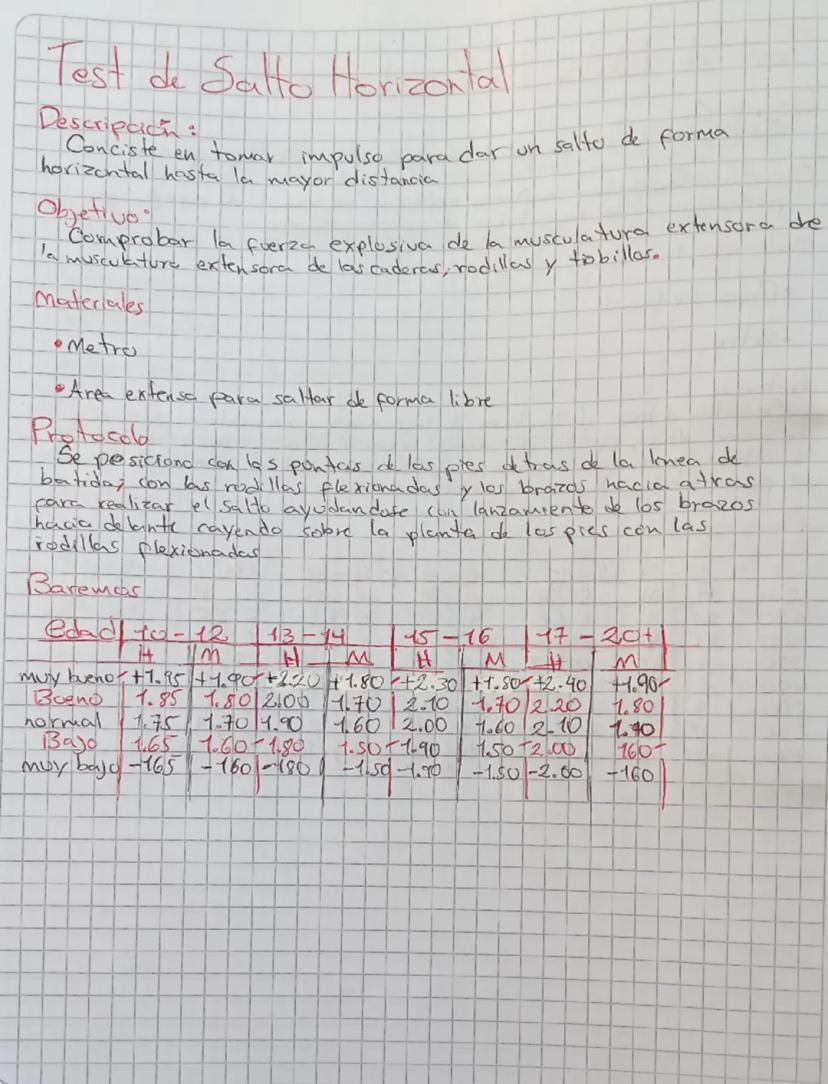 Test de Salto Horizontal
Descripción:
Conciste en tomar impulso para dar un salto de forma
horizontal hasta la mayor distancia
Objetivo:
Comprobar la fuerza explosiva de la musculatura extensora de
la musculatura extensora de las caderas, rodillas y tobillos.
Materiales
• Metro
• Area extensa para saltar de forma libre
Protocolo
Se posiciona con las puntas de los pies detras de la linea de
batida, con las rodillas flexionadas y los brazos hacia atras
para realizar el salto ayudandose con lanzamiento de los brazos
hacia delante cayendo sobre la planta de los pies con las
rodillas flexionadas
Baremos
edad 10-12 13-14 15-16 17-20+
H M H M H M H M
muy bueno +1.85 +1.90 +2.20 +1.80 +2.30 +1.80 +2.40 +1.90
Bueno 1.85 1.80 2.00 1.70 2.10 1.70 2.20 1.80
normal 1.75 1.70 1.90 1.60 2.00 1.60 2.10
Bajo 1.65 1.60 1.80 1.50 1.90 1.50 2.00 160
muy bajo -165 -160 -180 -1.50 -1.90 -1.50 -2.00 -160